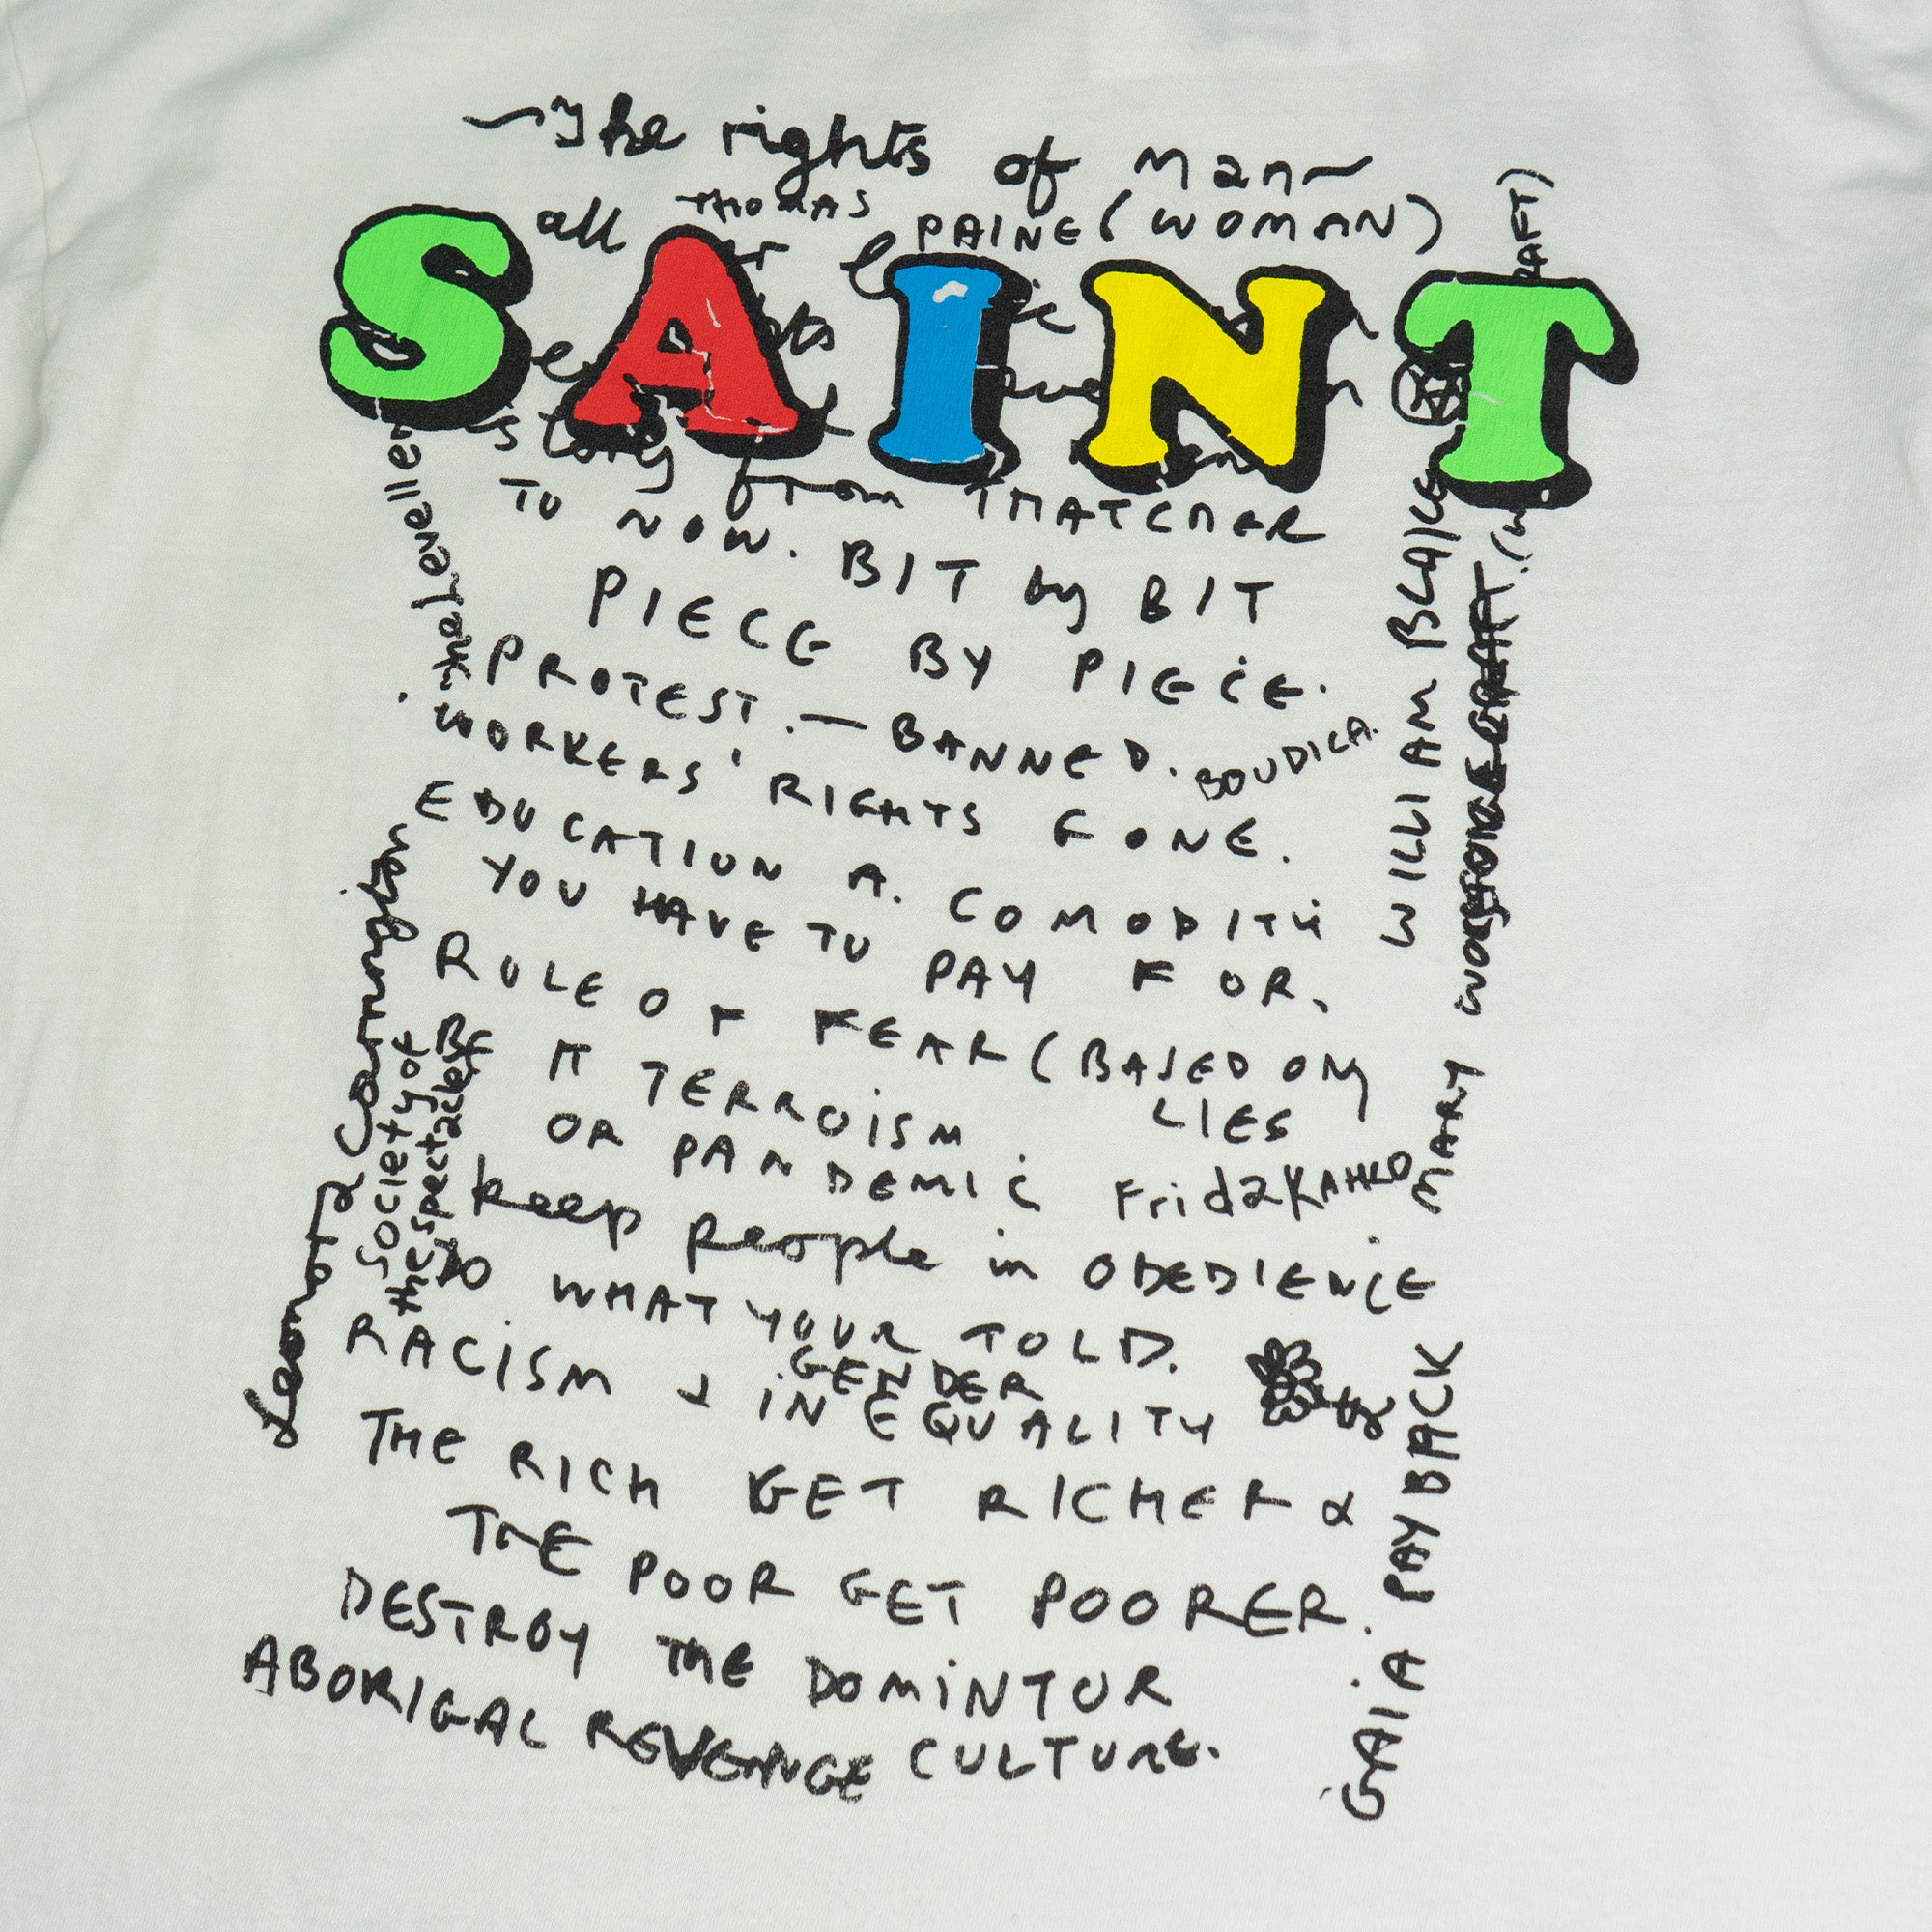 ~The rights of Man~
all THOMAS PAINE (WOMAN)
SAINT
story from THATCHER
TO NOW. BIT by BIT
PIECE BY PIECE.
PROTEST. — BANNED. BOUDICA.
WORKERS' RIGHTS GONE.
EDUCATION A. COMODITY
YOU HAVE TO PAY FOR.
RULE OF FEAR (BASED ON
LIES
BE IT TERROISM
OR PANDEMIC Frida KAHLO
keep people in OBEDIENCE
DO WHAT YOUR TOLD.
RACISM & GENDER
INEQUALITY
THE RICH GET RICHER &
THE POOR GET POORER.
DESTROY THE DOMINTUR
ABORIGAL REVENGE CULTURE.
the Leveller
Leonora Carrington
Society of
the spectacle
WILLIAM BLAKE
MARY
GAIA PAYBACK